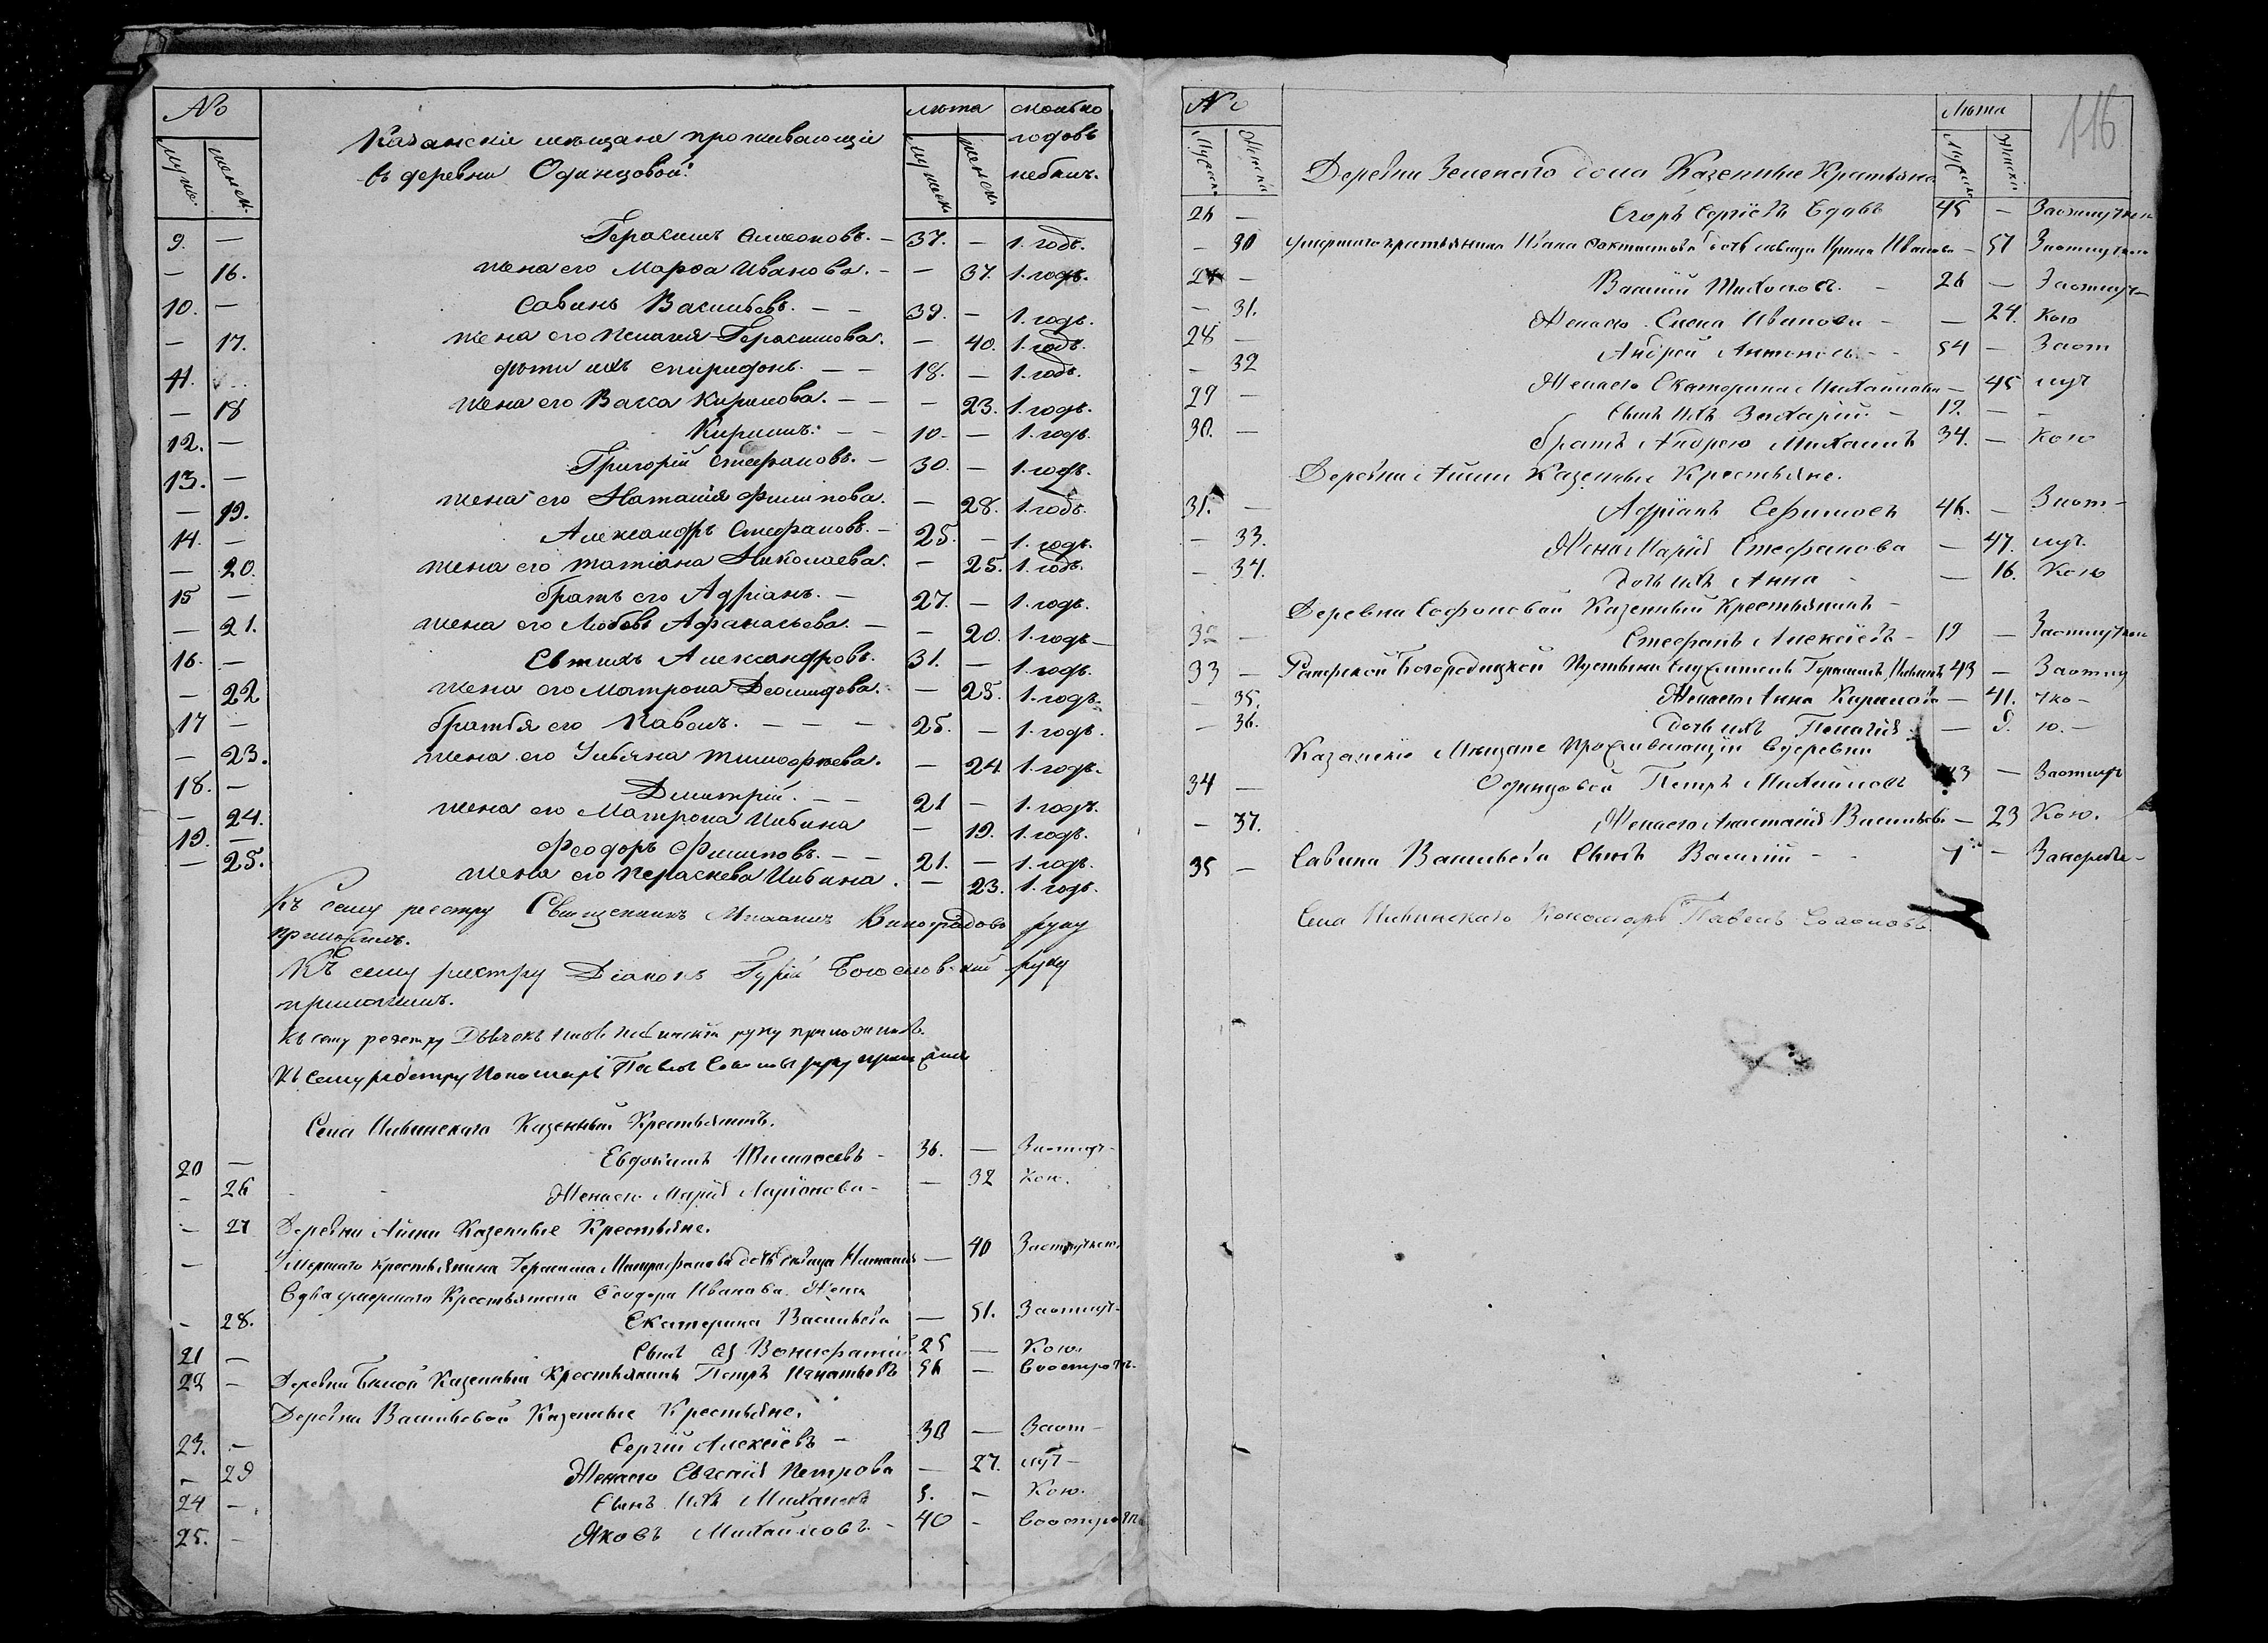 № лѣта сколько
мужс. женск. мужск. женск. годовъ
Казанскіе мѣщане проживающіе небыл.
въ деревни Одинцовой.
9. — Герасимъ Симеоновъ. — 37. — 1. годъ.
— 16. жена его Марѳа Иванова. — — 37. 1. годъ.
10. — Савинъ Васильевъ. — — 39. — 1. годъ.
— 17. жена его Пелагея Герасимова. — 40. 1. годъ.
11. дѣти ихъ Спиридонъ. — — 18. — 1. годъ.
— 18 жена его Васса Кирилова. — — — 23. 1. годъ.
12. — Кирилъ. — — 10. — 1. годъ.
13. — Григорій Стефановъ. — 30. — 1. годъ.
— 19. жена его Наталия Филипова. — 28. 1. годъ.
14. — Александръ Стефановъ. — 25. — 1. годъ.
— 20. жена его Татіана Николаева. — 25. 1. годъ.
15 — братъ его Адріанъ. — 27. — 1. годъ.
— 21. жена его Любовь Афанасьева. — — 20. 1. годъ —
16. — Евтихъ Александровъ. 31. — 1. годъ.
— 22 жена его Матрона Деомидова. — 25. 1. годъ.
17 — братья его Павелъ. — — — 25. — 1. годъ.
— 23. жена его Ульяна Тимофѣева. — 24 1. годъ.
18. — Димитрій. — — 21 — 1. годъ.
— 24. жена его Матрона Ильина — 19. 1. годъ.
19. — Феодоръ Филиповъ. — — 21. — 1. годъ.
— 25. жена его Параскева Ильина. — 23. 1. годъ.
Къ сему реестру Священникъ Виноградовъ руку
приложилъ.
Къ сему реестру Діаконъ Гурій Богословскій руку
приложилъ.
Къ сему реестру Дьячекъ руку приложилъ.
Къ сему реестру Пономарь Павелъ руку приложилъ
Села Ивинскаго Казенный Крестьянинъ.
20 — Евдокимъ — 36. — Заотлуч-
- 26 Жена его Марія Ларіонова — — 32 Кою.
- 27 Деревни Айши Казенные Крестьяне.
- Умершаго крестьянина Герасима Митрофанова дочь дѣвица Наталія — 40 Заотлучкою.
Вдва умершаго Крестьянина Ѳеодора Иванова Жена
- 28. Екатерина Васильева — 51. Заотлуч-
21 — Сынъ Ея 25 — Кою.
22 — Деревни Бѣлой Казенный Крестьянинъ Петръ Игнатьевъ 56 —
Деревни Васильевой Казенные Крестьяне.
23. — Сергій Алексіевъ — 30 — Заот-
- 29 Жена его Евгенія Петрова — 27. луч-
24 — Сынъ Ихъ Михаилъ 5. — Кою.
25. — Яковъ Михайловъ. — 40 -
116
№ Лѣта
Мужска Женска Мужска Женска
Деревни Зеленаго дола Казенные Крестьяна
26 — Егоръ Сергіевъ 45 — Заотлучкою
— 30 умершаго крестьянина Ивана дочь дѣвица Ирина Иванова — 57 Заотлучкою
27 — Василій — 26 — Заотлуч-
— 31. Жена его Елена Иванова — — 24. Кою
28 — Андрей Антоновъ — 54 — Заот
- 32 Жена его Екатерина Михайлова — 45 луч
29 — Сынъ ихъ Захарій — 19. — -
30. — братъ Андрею Михаилъ 34. — Кою
Деревни Айши Казенные Крестьяне.
31. — Адріанъ Ефимовъ 46. — Заот-
— 33. Жена Марія Стефанова — 47. луч.
- 34. дочь ихъ Анна — — 16. Кою
Деревни Софоновой Казенный Крестьянинъ —
32 — Стефанъ Алексіевъ — 19 — Заотлучкою
33 — Раифской Богородицкой Пустыни Служитель Герасимъ 43 — Заотлу
— 35. Жена его Анна Кирилова — 41. чко-
— 36. Дочь ихъ Пелагія — 9. ю.—
Казанскіе Мѣщане проживающіи вдеревни
34 — Одинцовой Петръ Михайловъ — Заотлуч
— 37. Жена его Анастасія Васильева — 23 Кою.
35 — Савина Васильева Сынъ Василій — —
Села Ивинскаго Пономарь Павелъ